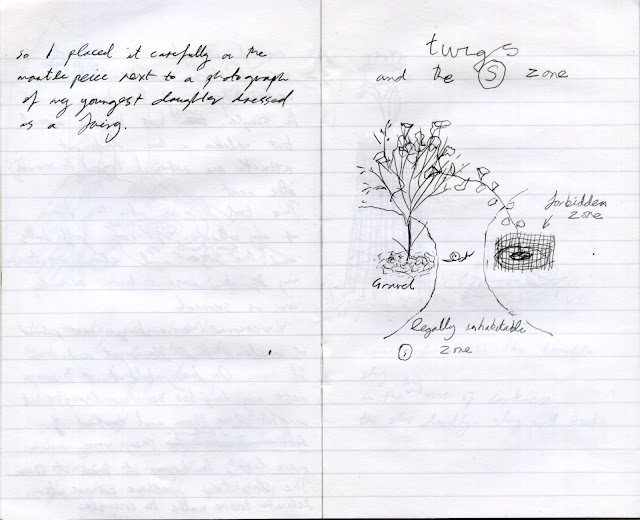 so I placed it carefully on the
mantle peice next to a photograph
of my youngest daughter dressed
as a fairy.
twigs
and the S zone
forbidden
zone
Gravel
legally inhabitable
zone